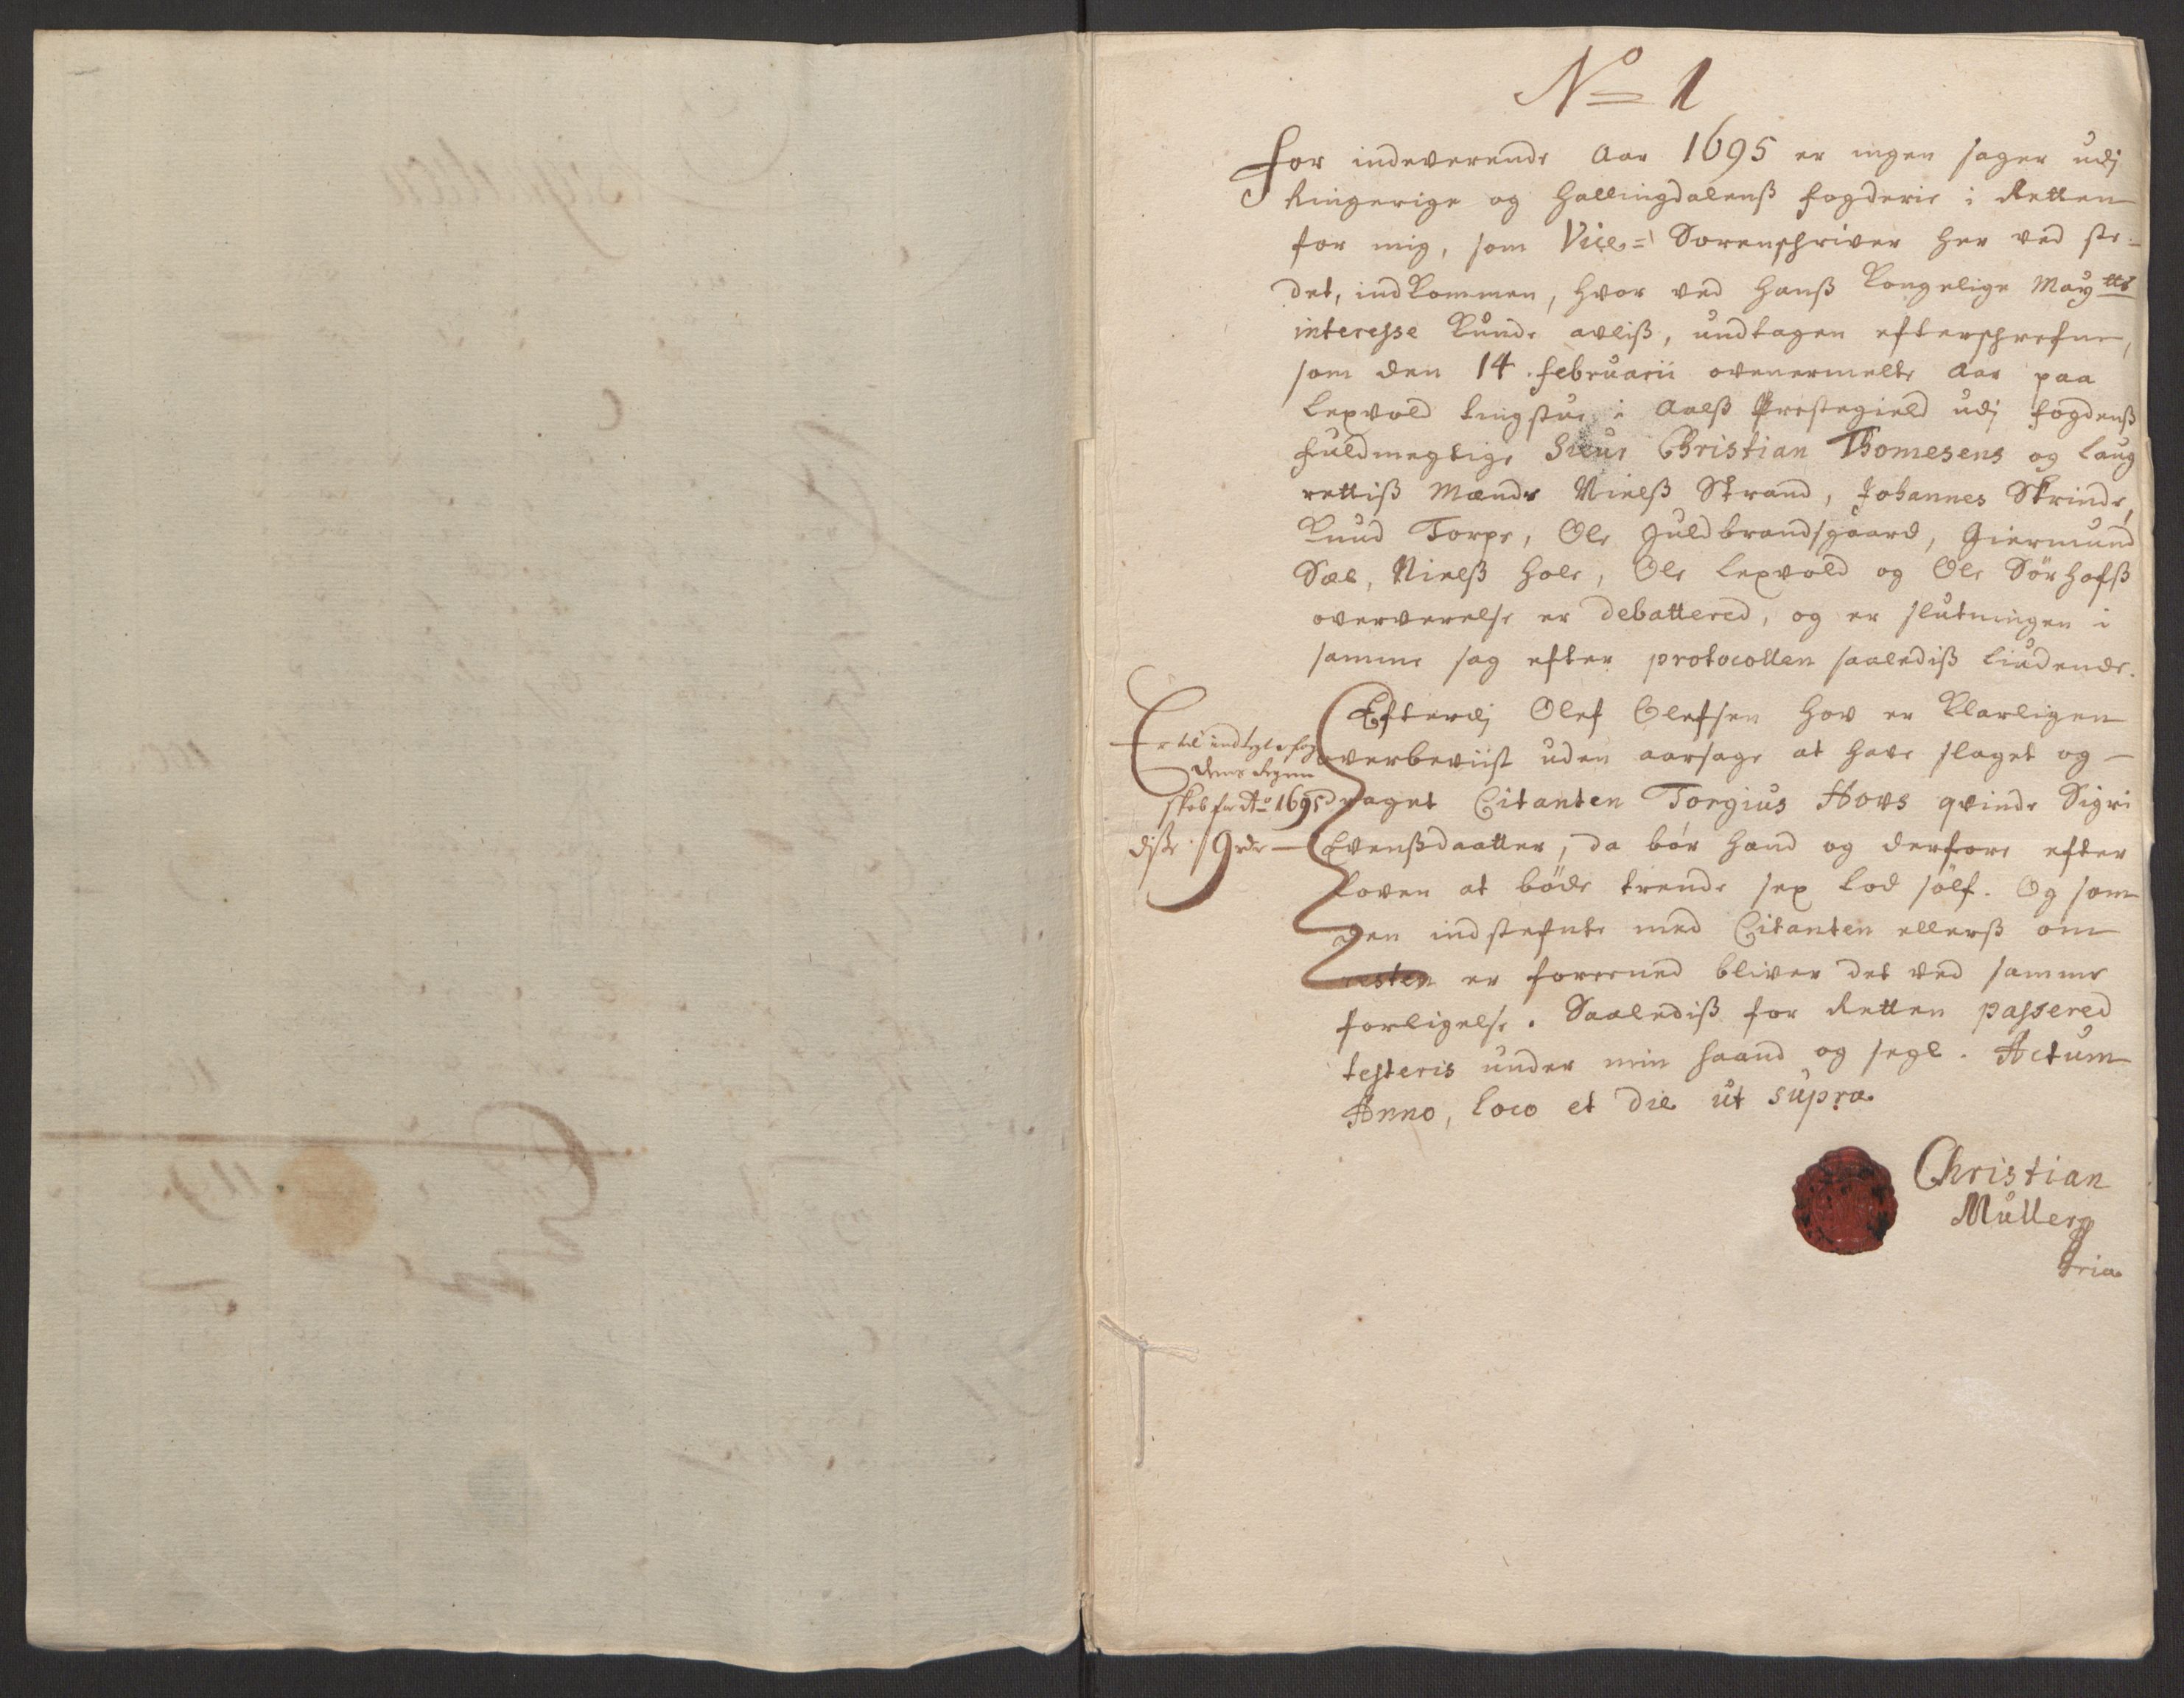 No 1
For indeverende Aar 1695 er ingen sager udj
Ringerige og Hallingdalenß fogderie i Retten
for mig, som Vice= Sorenschriver her ved ste=
det, indkommen, hvor ved Hanß Kongelige Maytts
interesse kunde avliß, undtagen efterschrefne,
som den 14. februarii ovenermelte Aar paa
Lexvold tingstue i Aalß Prestegield udj fogdenß
fuldmegtige Sieur Christian Thomesens og Laug
rettiß Mænds Nielß Strand, Johannes Skrinde,
Knud Torpe, Ole Guldbrandsgaard, Giermund
Sæl, Nielß Hole, Ole Lexvold og Ole Sörhofß
oververelse er debattered, og er slutningen i
samme sag efter protocollen saalediß liudende.
Efterdj Olef Olefsen Hov er klarligen
overbeviist uden aarsage at have slaget og
draget Citanten Torgius Hovs qvinde Sigri
Evenßdaatter, da bör hand og derfore efter
Loven at böde trende sex lod sölf. Og som
den indstefnte med Citanten ellerß om
resten er foreened bliver det ved samme
forligelse. Saalediß for Retten passered
testeris under min haand og segl. Actum
Anno, loco et die ut supra
Er til indtegt fog
dens Regen
skab for Ao 1695
diße 9 rdr
Christian
Müller